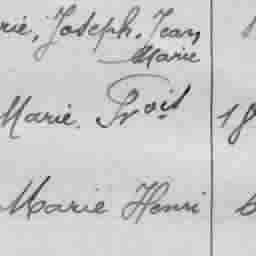 rie, Joseph, Jean
Marie
Marie. Proit 18
Marie Henri